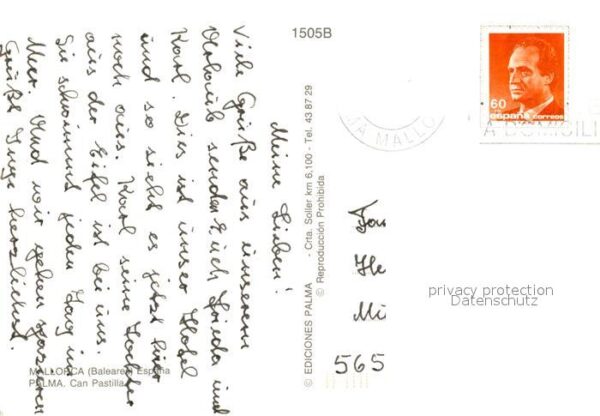 Meine Lieben!
Viele Grüße aus unserem
Urlaub senden Euch Frieda und
Karl. Dies ist unser Hotel
und so sieht es jetzt hier
noch aus. Karl seine Tochter
aus der Eifel ist bei uns.
Sie schwimmt jeden Tag im
Meer. Und wir gehen spazieren
Grüßt Inge herzlichst.
MALLORCA (Baleares) España
PALMA. Can Pastilla
1505B
© EDICIONES PALMA - Crta. Soller km 6,100 - Tel. 43 87 29
© Reproducción Prohibida
60
españa correos
MA MALLO
A DOMICILI
Fam
He
Mi
565
privacy protection
Datenschutz